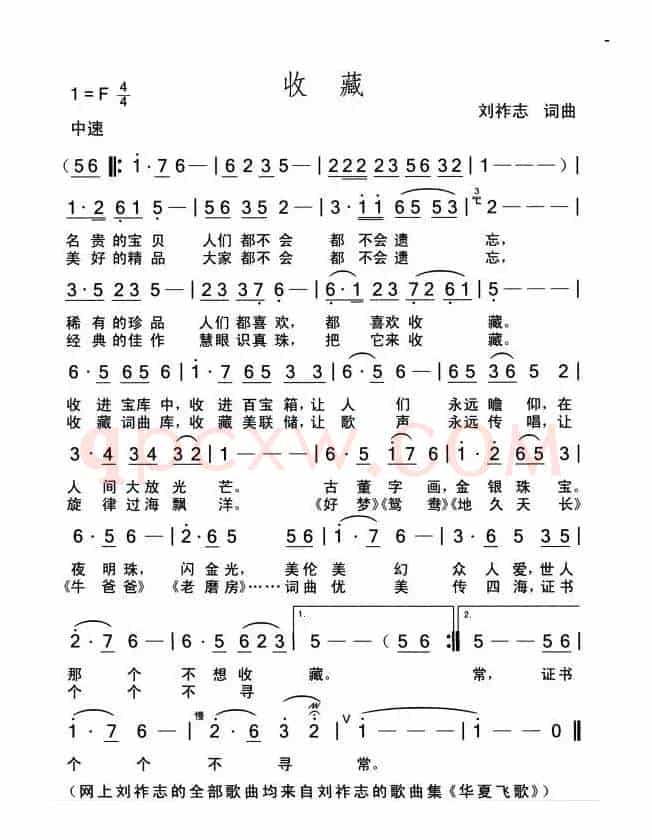 收 藏
1=F 4/4
刘祚志 词曲
中速
(56 ‖: 1·76— | 6235— | 222235632 | 1———) |
1·2615— | 56535— | 3·1165553 | 2———
名贵的宝贝 人们都不会 都 不会遗 忘,
美好的精品 大家都不会 都 不会遗 忘,
3·5235— | 22373— | 6·1237261 | 5———
稀有的珍品 人们都喜欢, 都 喜欢收 藏。
经典的佳作 慧眼识真珠, 把 它来收 藏。
6·5656 | 1·76533 | 6·56— | 3·36352 |
收进宝库中,收进百宝箱,让人 们 永远瞻 仰,在
收藏词曲库,收藏美联储,让歌 声 永远传 唱,让
3·43432 | 1——— | 1·765 | 1·2653 |
人 间大放光 芒。 古董字画,金银珠宝。
旋 律过海飘 洋。 《好梦》《鸳 鸯》《地久天长》
qpcxw.com
6·56— | 2·65— | 1·765 | 3·2332 |
夜明珠, 闪金光, 美伦美 幻 众人爱,世人
《牛爸爸》 《老磨房》……词曲优 美 传四海,证书
1. 2.
2·76— | 5·6623 | 5——(56 :‖ 5——56
那 个 不 想收 藏。 常, 证书
个 个 不 寻
慢
1·76— | 2·632 | V 1——— | 1——0 ‖
个 个 不 寻 常。
(网上刘祚志的全部歌曲均来自刘祚志的歌曲集《华夏飞歌》)